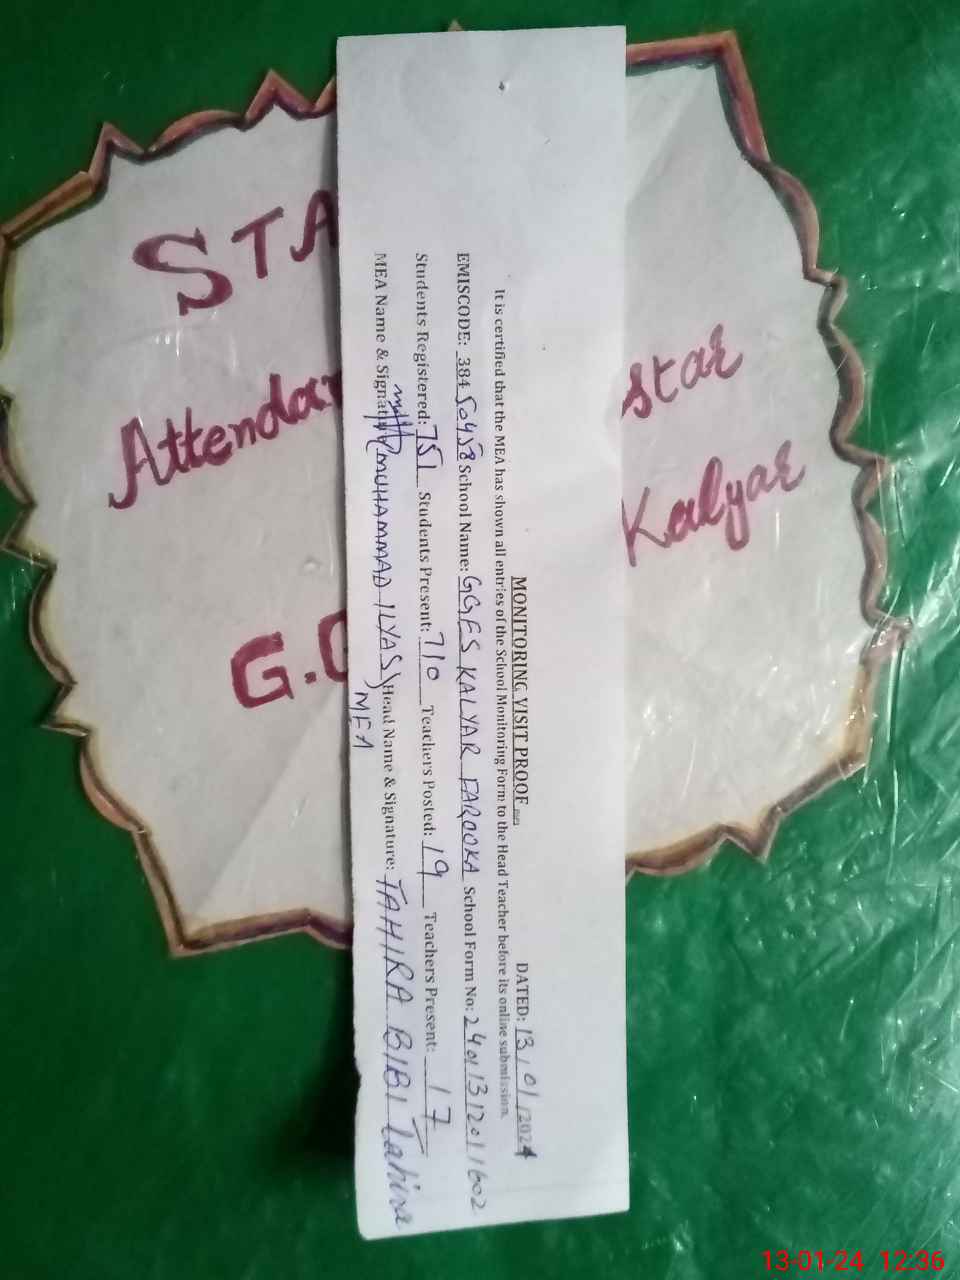 STA
Attendan
star
Kalyar
G.G
MONITORING VISIT PROOF
DATED: 13/01/2024
It is certified that the MEA has shown all entries of the School Monitoring Form to the Head Teacher before its online submission.
EMISCODE: 38450458 School Name: GGES KALYAR FAROOKA School Form No: 24011312011602
Students Registered: 751 Students Present: 710 Teachers Posted: 19 Teachers Present: 17
MEA Name & Signature (MUHAMMAD ILYAS) Head Name & Signature: TAHIRA BIBI Tahira
MEA
13-01-24 12:36